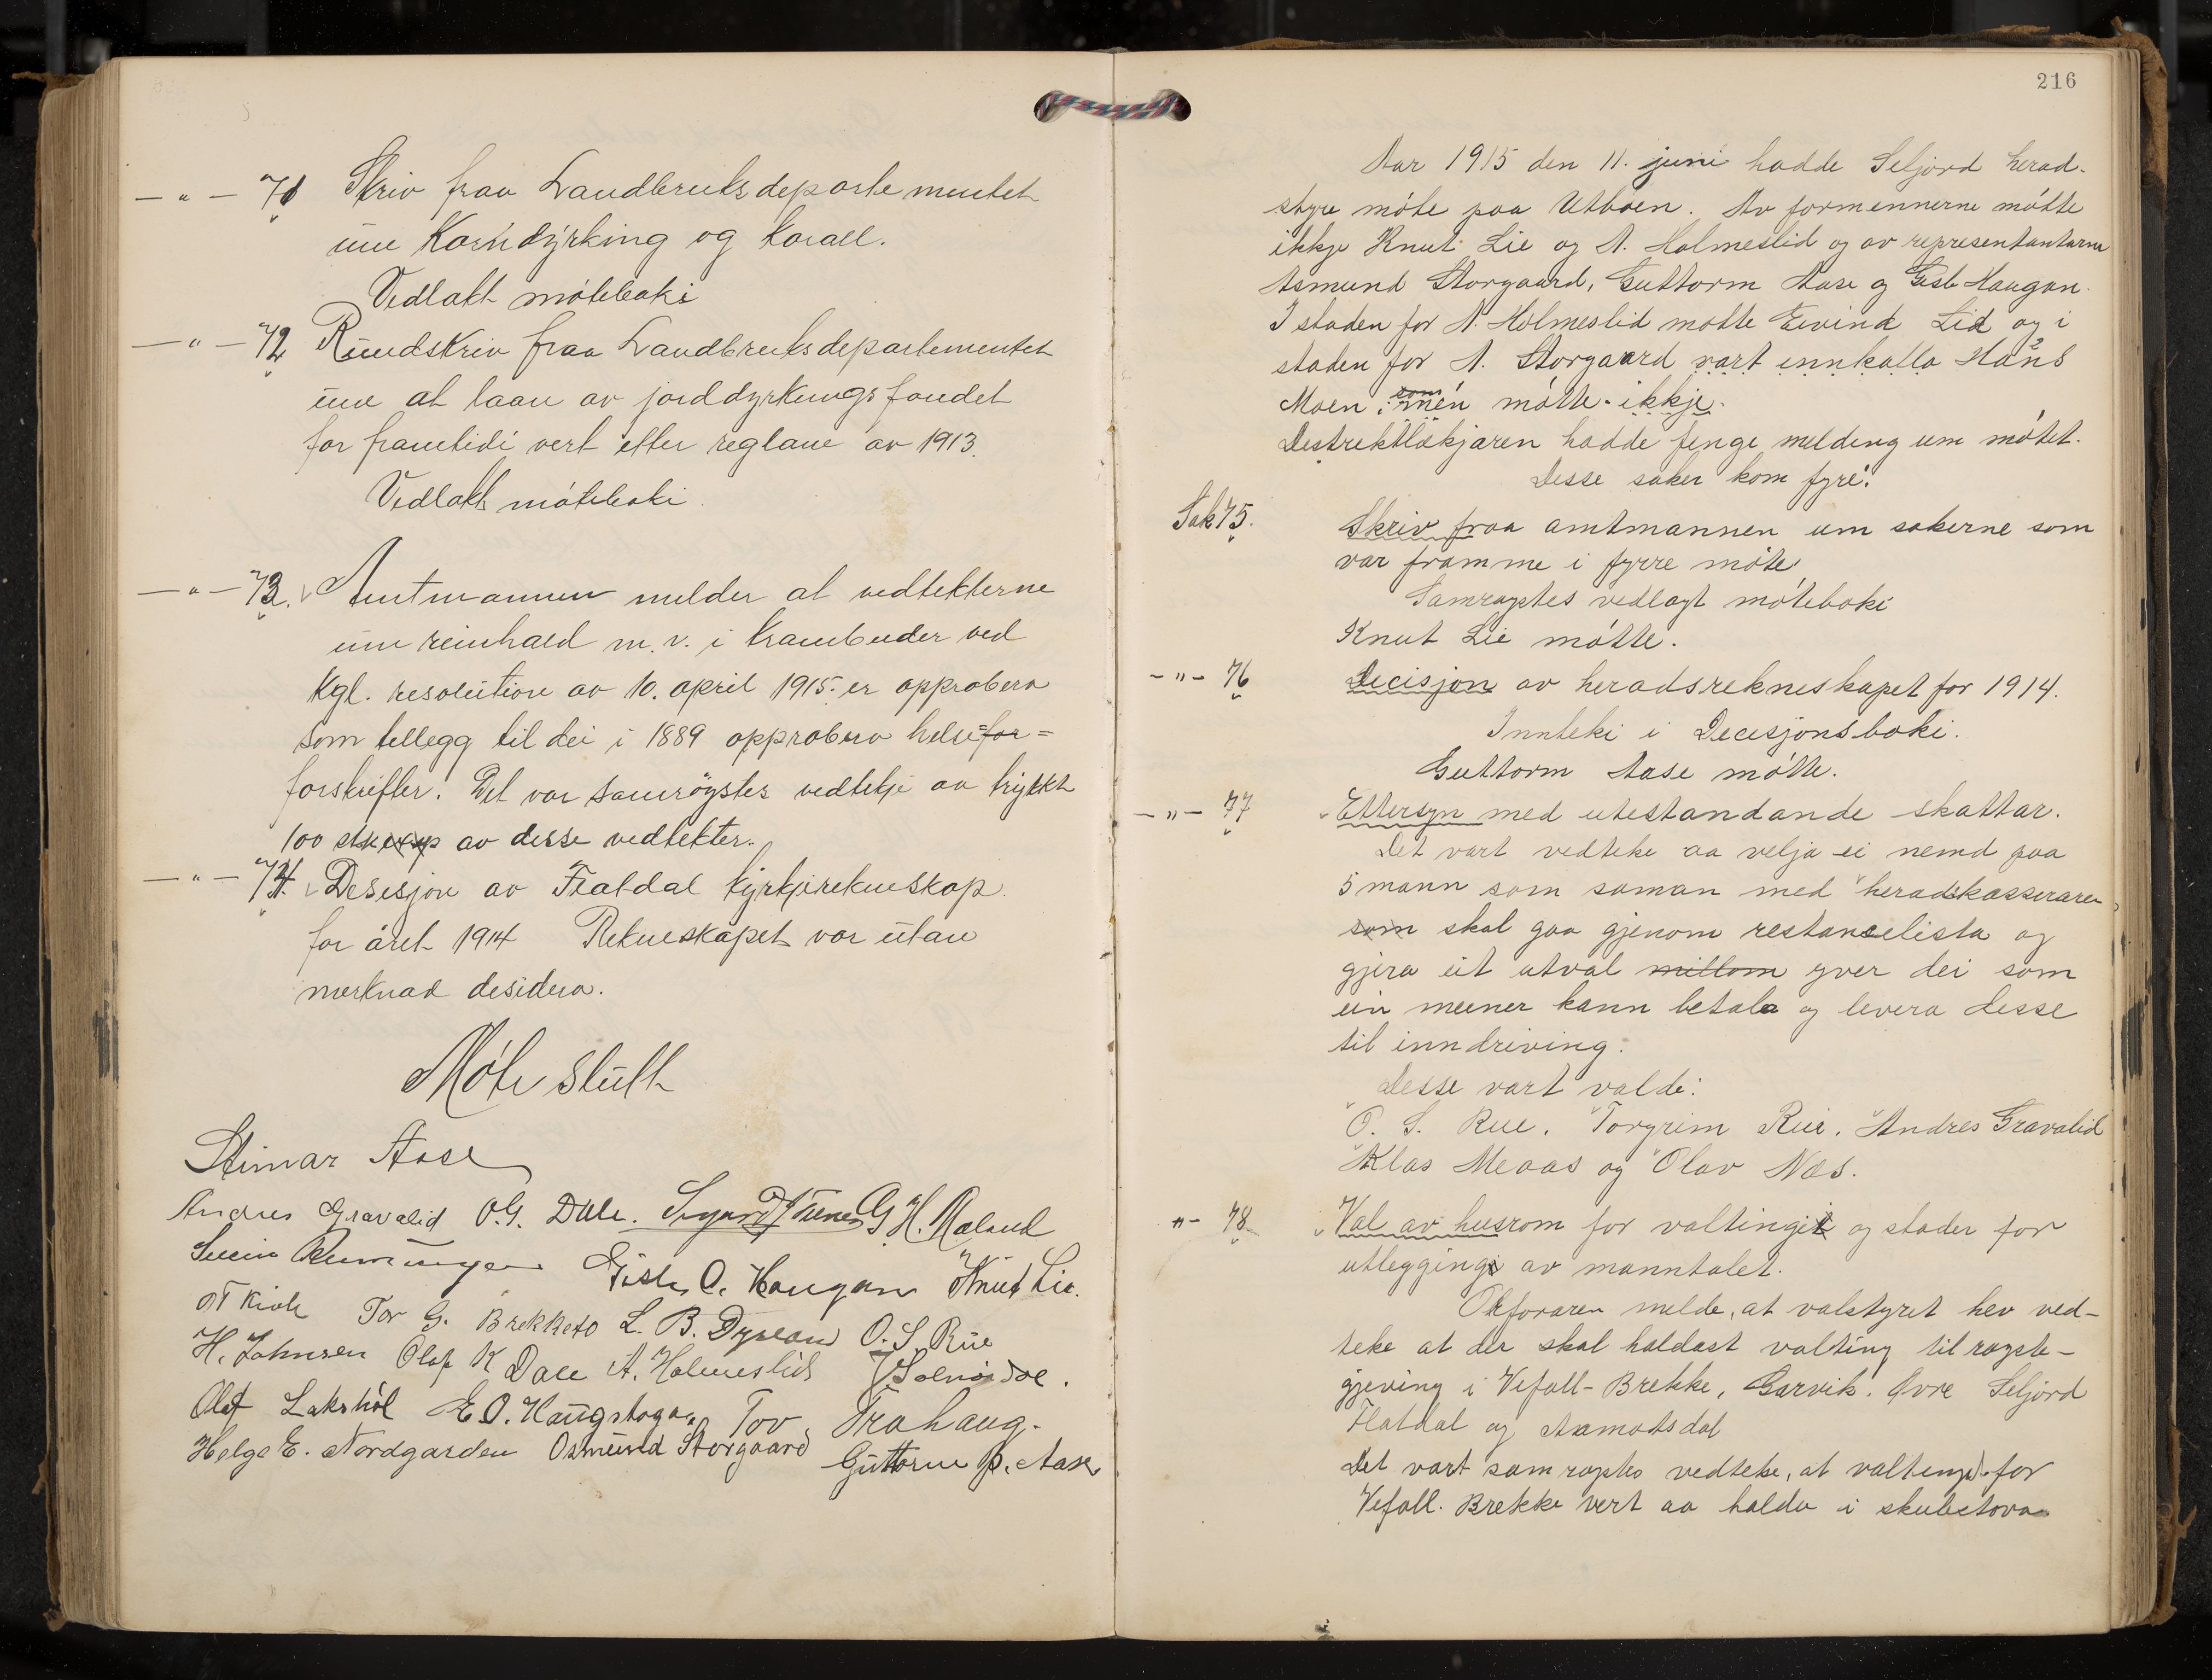 — " — 71 Skriv fraa Landbruksdepartementet
um Korndyrking og Korall.
Vedlakt møteboki
— " — 72 Rundskriv fraa Landbruksdepartementet
um at laan av jorddyrkungsfondet
for framtidi vert etter reglane av 1913.
Vedlakt møteboki.
— " — 73. Amtmannen melder at vedtekterne
um reinhald m.v. i Krambuder ved
Kgl. resolution av 10. april 1915 er approbera
som tellegg til dei i 1889 approbera helse=for=
forskrifter. Det var samrøystes vedtekje aa trykkt
100 stk av desse vedtekter.
— " — 74. Desesjon av Flatdal kyrkjirekneskap
for året 1914 Rekneskapet var utan
merknad desidera.
Møte slutt
Steinar Aase
Andres Gravalid O.G. Dale. G H. Røland
Svein Gisle O. Haugan Knut Lie.
Tor G. Brekketo L. B. Dyrland O. S. Rue
H. Johnsen Olaf K Dale A. Holmeslid
Olaf Lakshøl E O. Haugstoga Tov Trahaug.
Helge E. Nordgarden Osmund Storgaard Guttorm P. Aase
216
Aar 1915 den 11. juni hadde Seljord herad-
styre møte paa Utbøen. Av formennerne møtte
ikkje Knut Lie og A. Holmeslid og av representantarne
Asmund Storgaard, Guttorm Aase og Gisle Haugan.
I staden for A. Holmeslid møtte Eivind Lid og i
staden for A. Storgaard vart innkalla Hans
Moen, som men møtte ikkje.
Destriktlækjaren hadde fenge melding um møtet.
Desse saker kom fyre:
Sak 75. Skriv fraa amtmannen um sakerne som
var framme i fyrre møte
Samrøystes vedlagt møteboki
Knut Lie møtte.
— " — 76 Decisjon av heradsrekneskapet for 1914.
Innteki i Decesjonsboki.
Guttorm Aase møtte.
— " — 77 Ettersyn med utestandande skattar.
Det vart vedteke aa velja ei nemd paa
5 mann som saman med heradskasseraren
som skal gaa gjenom restanselista og
gjera eit utval millom yver dei som
ein meener kann betala og levera desse
til inndriving.
Desse vart valde:
O. S. Rue. Torgrim Rue. Andres Gravalid
Klas Meaas og Olav Næs.
" — 78 Val av husrom for valtingi og stader for
utlegging av manntalet.
Ordføraren melde, at valstyret hev ved-
teke at der skal haldast valting til røyste-
gjeving i Vefall-Brekke, Garvik. Øvre Seljord
Flatdal og Aamotsdal
Det vart samrøystes vedteke, at valtinget for
Vefall-Brekke vert aa halda i skulestova